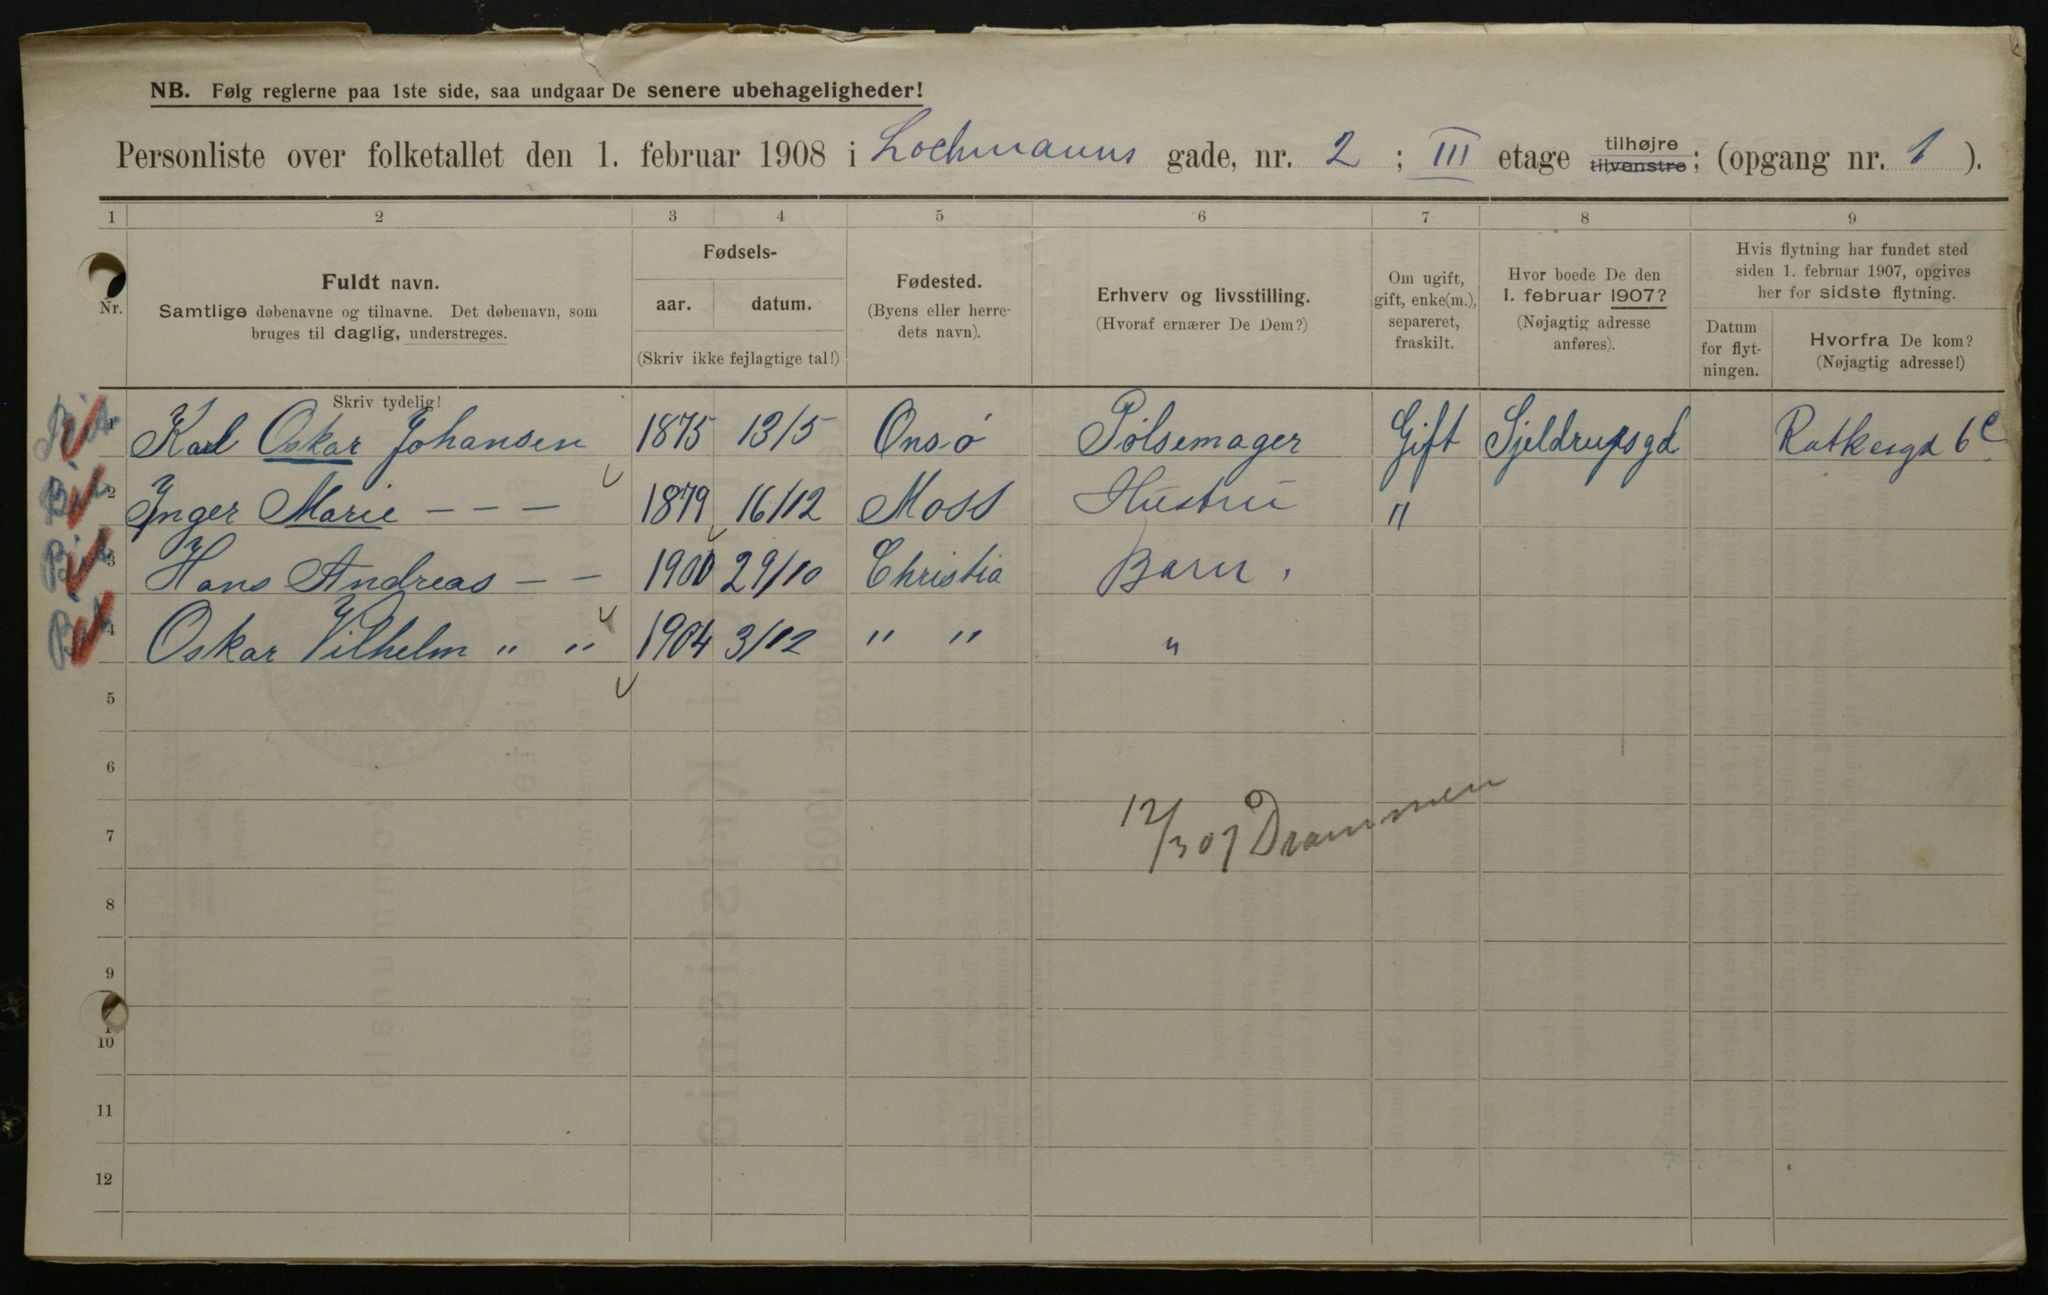 NB. Følg reglerne paa 1ste side, saa undgaar De senere ubehageligheder!
Personliste over folketallet den 1. februar 1908 i Lochmanns gade, nr. 2 ; III etage tilhøjre tilvenstre; (opgang nr. 1 ).
1 2 3 4 5 6 7 8 9
Nr.
Fuldt navn.
Samtlige døbenavne og tilnavne. Det døbenavn, som
bruges til daglig, understreges.
Fødsels-
aar. datum.
(Skriv ikke fejlagtige tal!)
Fødested.
(Byens eller herre-
dets navn).
Erhverv og livsstilling.
(Hvoraf ernærer De Dem?)
Om ugift,
gift, enke(m.),
separeret,
fraskilt.
Hvor boede De den
1. februar 1907?
(Nøjagtig adresse
anføres).
Hvis flytning har fundet sted
siden 1. februar 1907, opgives
her for sidste flytning.
Datum
for flyt-
ningen.
Hvorfra De kom?
(Nøjagtig adresse!)
Skriv tydelig!
1 Karl Oskar Johansen 1875 13/5 Onsö Pölsemager Gift Sjeldrupsgd Ratkesgd 6c
2 Inger Marie - - - 1879 16/12 Moss Hustru "
3 Hans Andreas - - 1900 29/10 Christia Barn.
4 Oskar Vilhelm " " 1904 3/12 " " "
5
6
7 12/3 07 Drammen
8
9
10
11
12